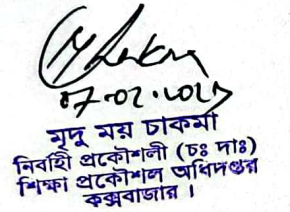 মৃদু ময় চাকমা
নির্বাহী প্রকৌশলী (চঃ দাঃ)
শিক্ষা প্রকৌশল অধিদপ্তর
কক্সবাজার ।